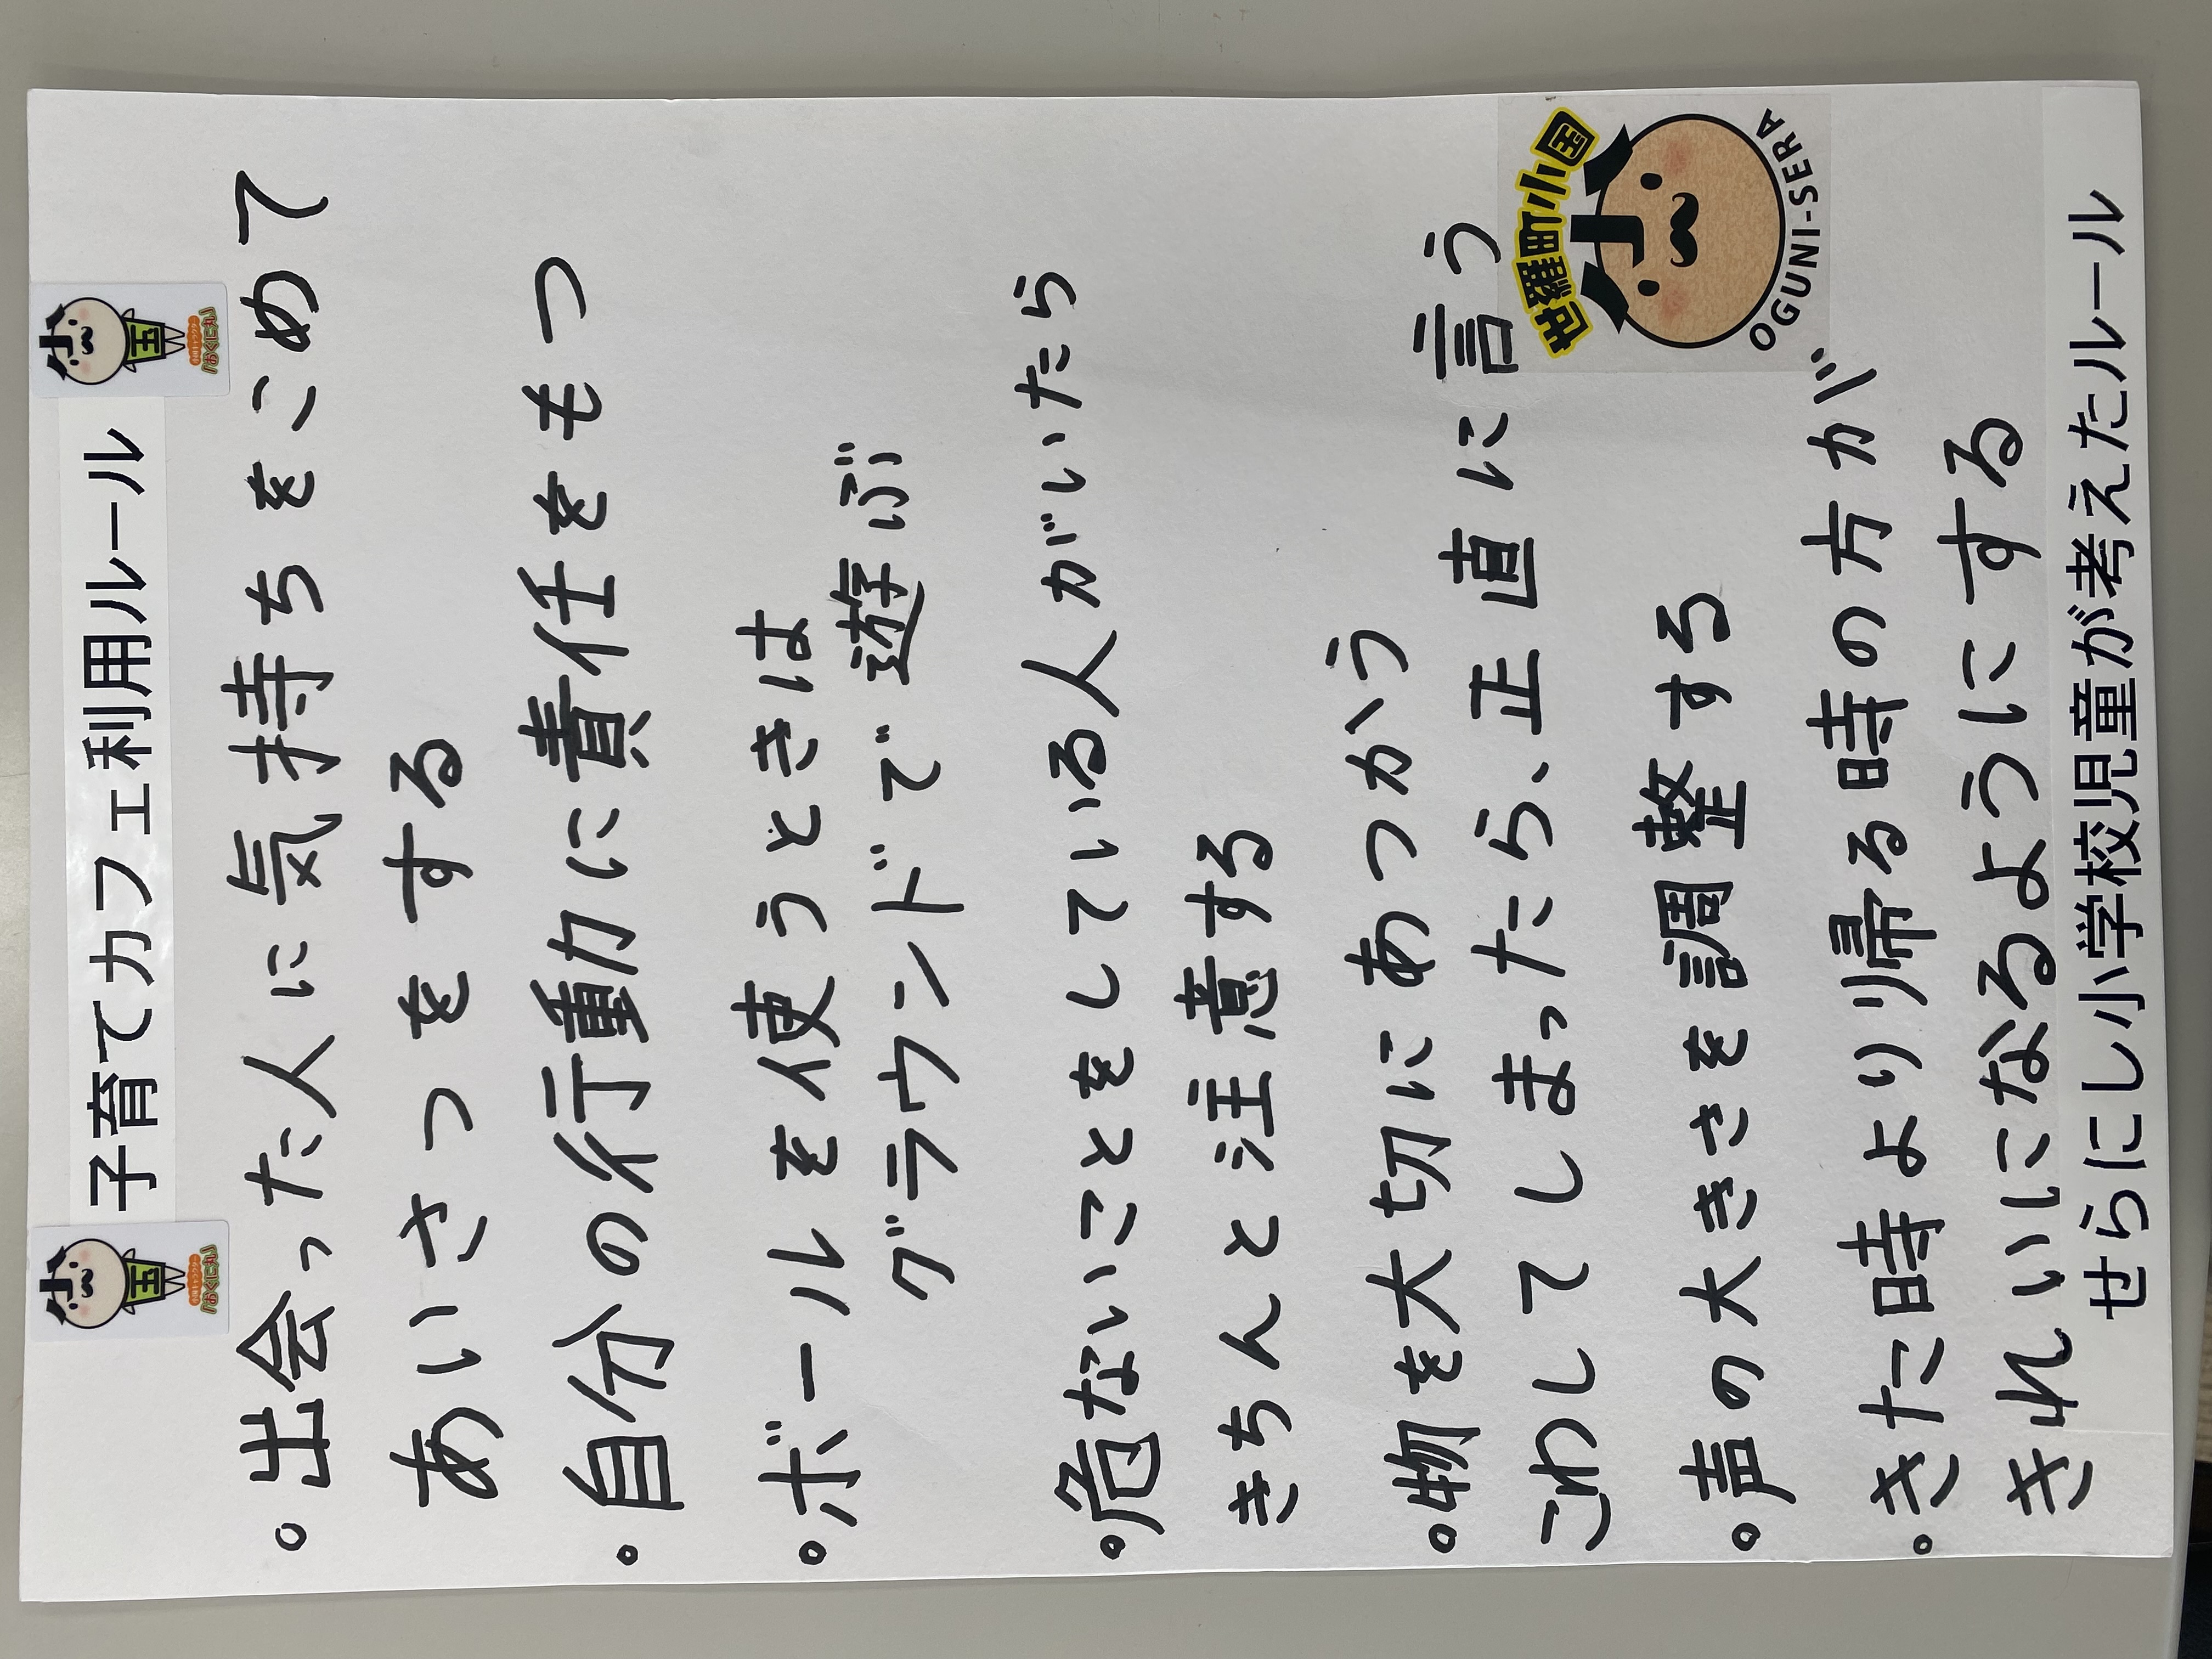 子育てカフェ利用ルール
小
国
小国キャラクター
「おぐに丸」
小
国
小国キャラクター
「おぐに丸」
。出会った人に気持ちをこめて
あいさつをする
。自分の行動に責任をもつ
。ボールを使うときは
グラウンドで遊ぶ
。危ないことをしている人がいたら
きちんと注意する
。物を大切にあつかう
こわしてしまったら、正直に言う
。声の大きさを調整する
。きた時より帰る時の方が
きれいになるようにする
世羅町小国
小
OGUNI-SERA
せらにし小学校児童が考えたルール